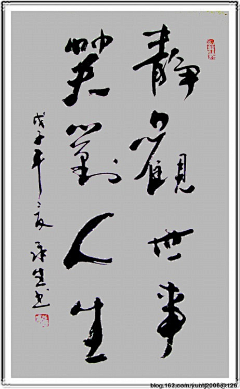 靜觀世事
笑對人生
戊子年夏
blog.163.com/junttj2006@126